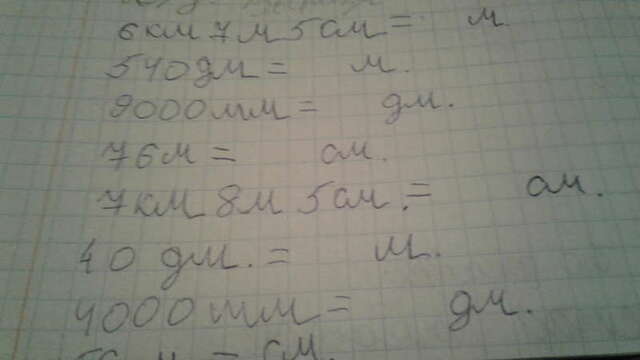 6км 7м 5см = м.
540дм = м.
9000мм = дм.
76м = см.
7км 8м 5см. = см.
40 дм. = м.
4000мм = дм.
м = см.